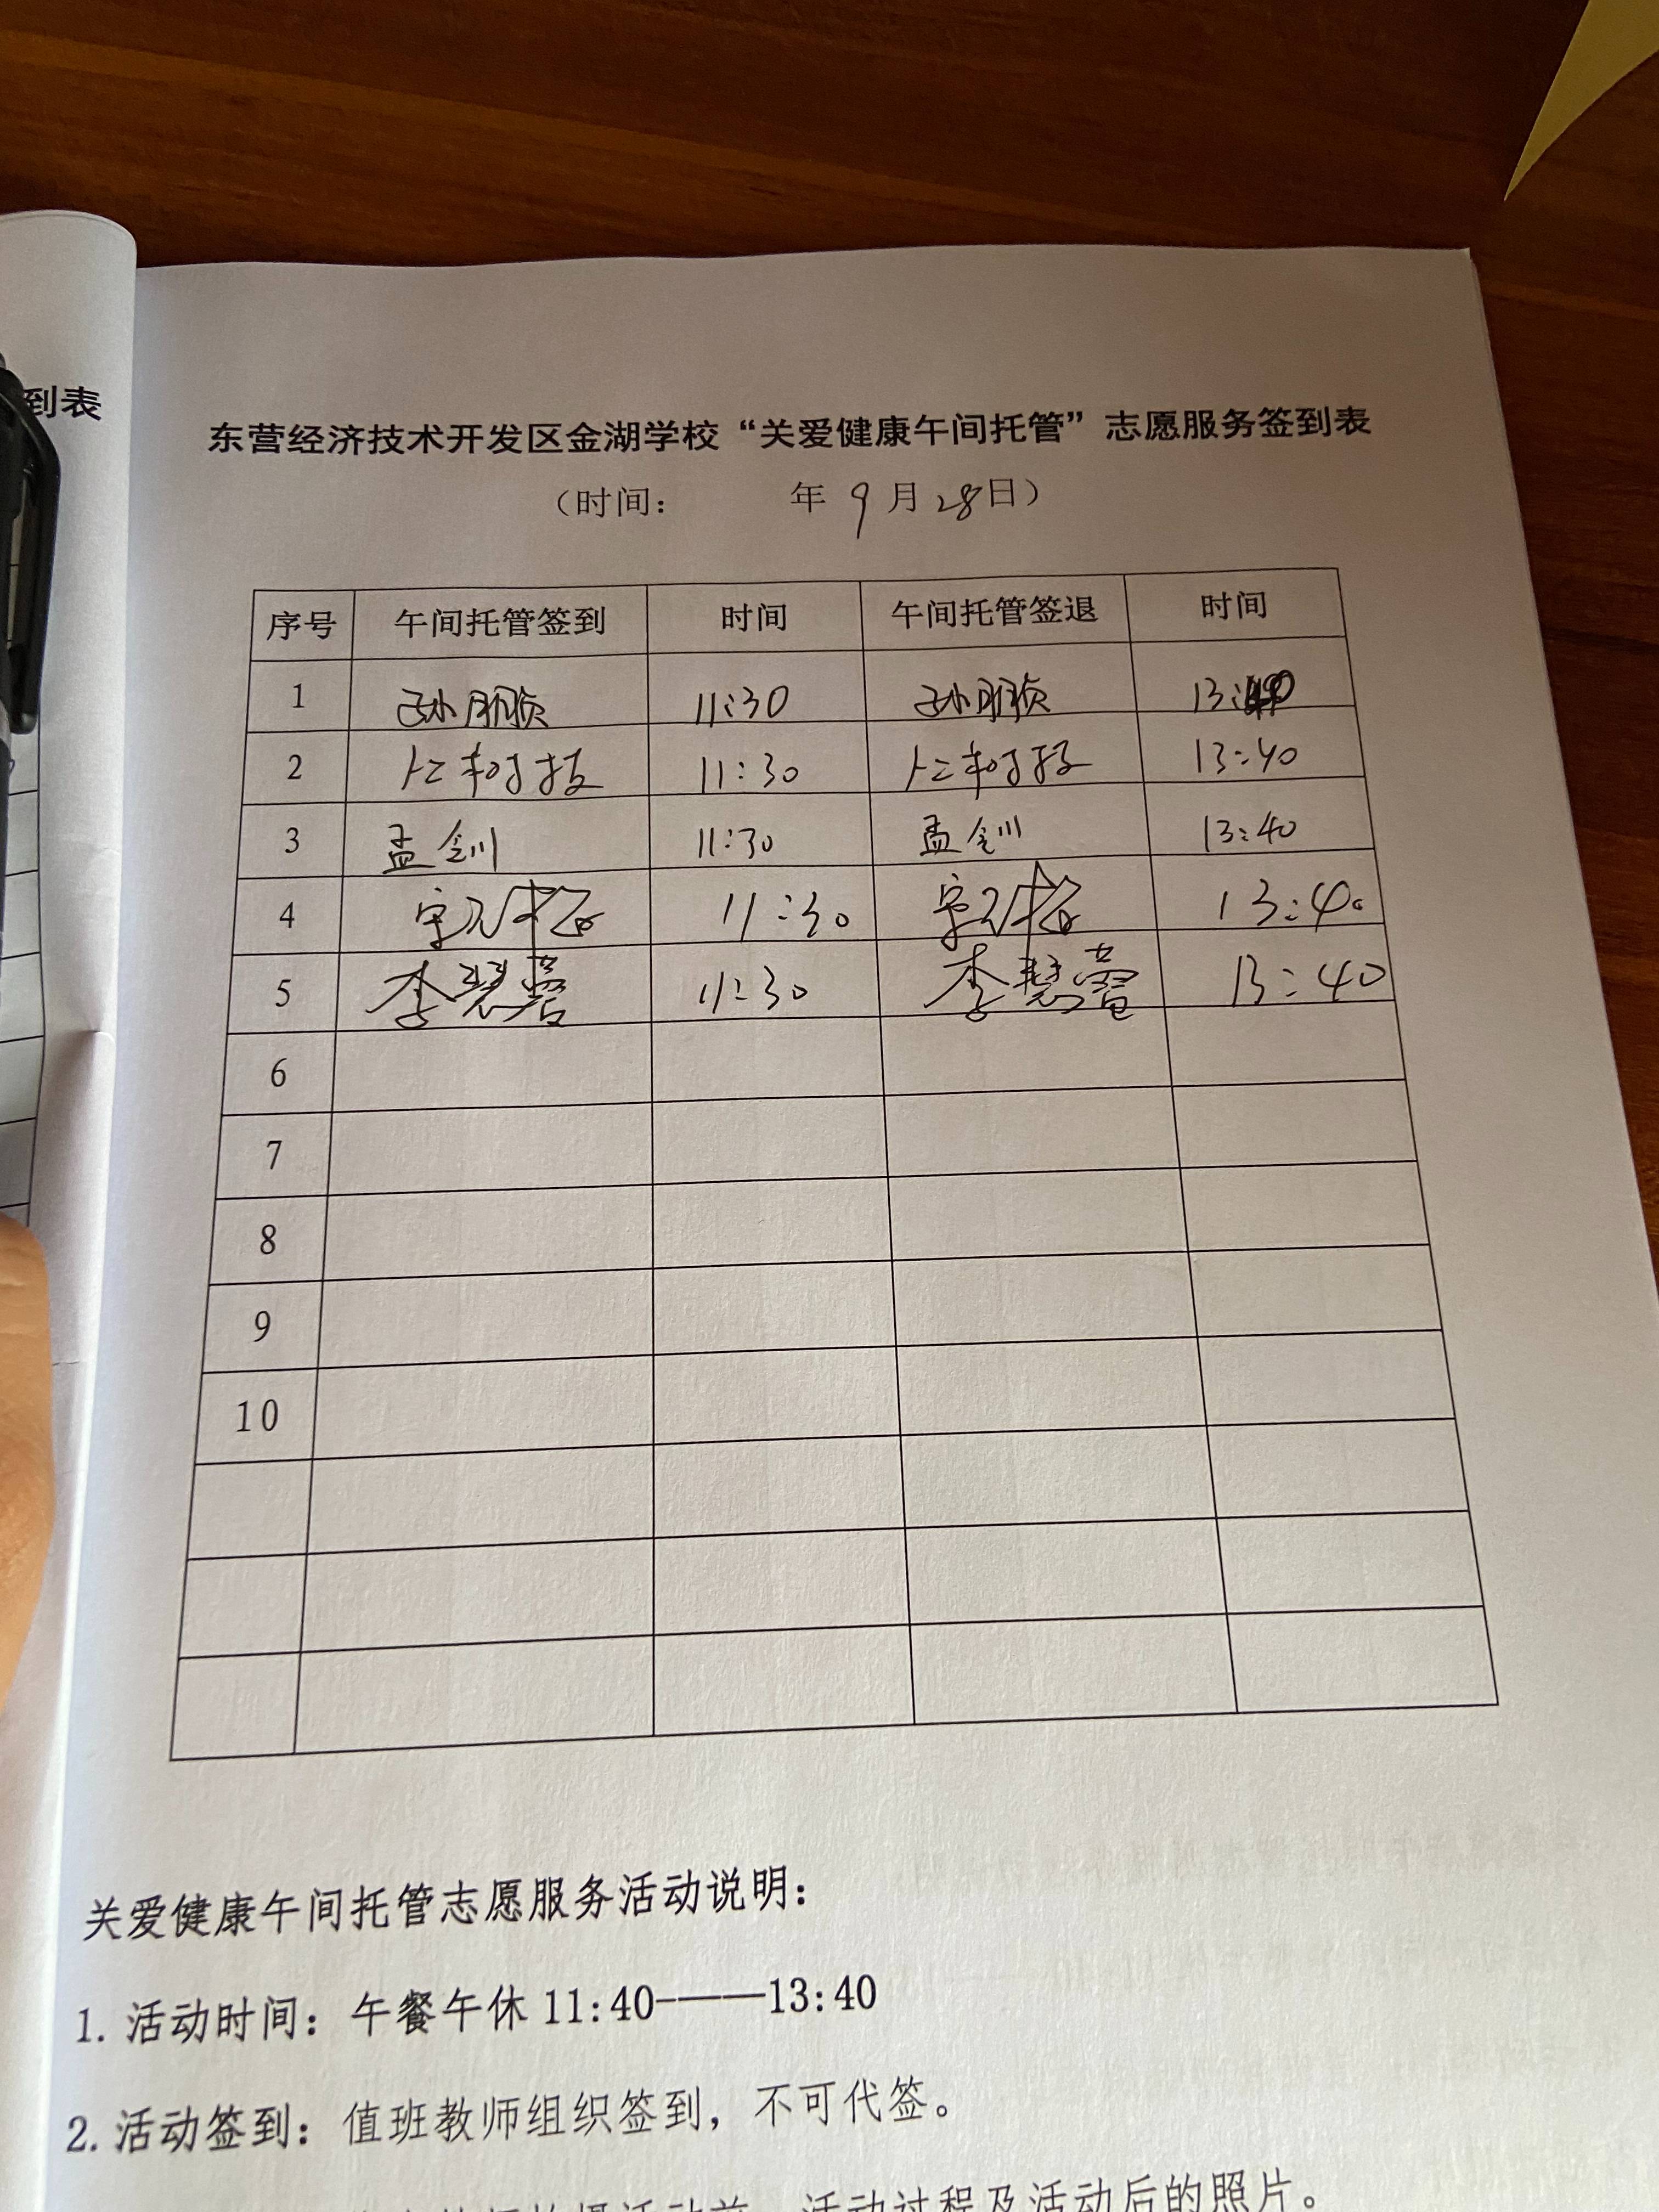 到表
东营经济技术开发区金湖学校“关爱健康午间托管”志愿服务签到表
（时间： 年 9 月 28 日）
序号 午间托管签到 时间 午间托管签退 时间
1 孙朋祯 11:30 孙朋祯 13:40
2 11:30 13:40
3 孟钏 11:30 孟钏 13:40
4 11:30 13:40
5 李慧蕾 11:30 李慧蕾 13:40
6
7
8
9
10
关爱健康午间托管志愿服务活动说明：
1. 活动时间：午餐午休 11:40-——13:40
2. 活动签到：值班教师组织签到，不可代签。
活动过程及活动后的照片。